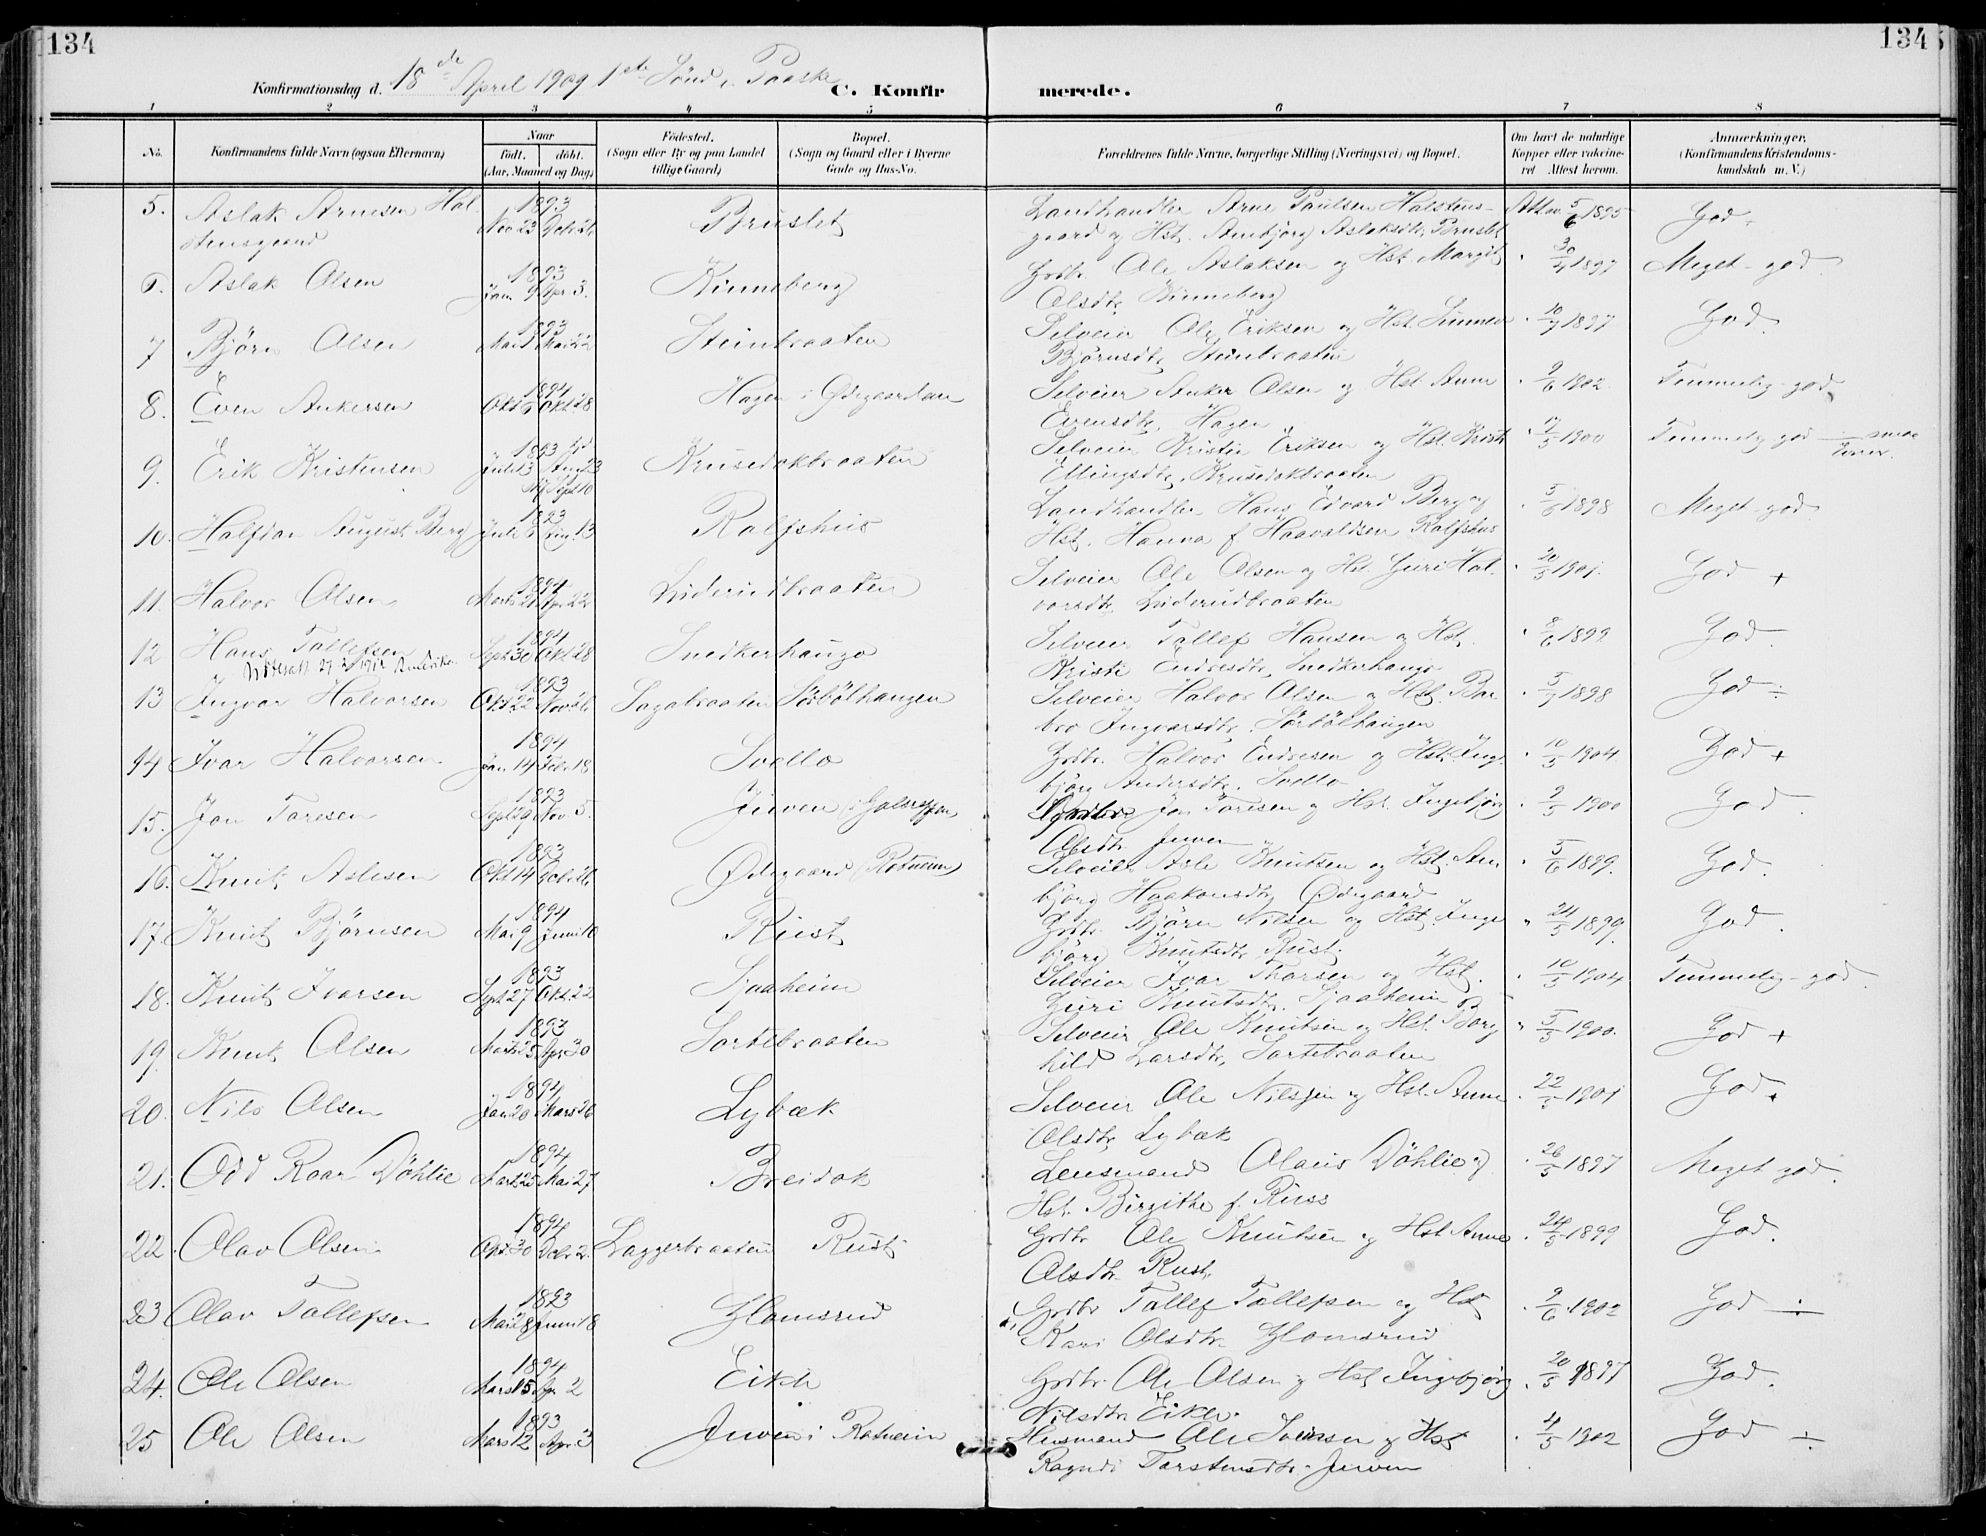 134
134
Konfirmationsdag d. 18de April 1909 1ste Sönd. i Paaske C. Konfirmerede.
1 2 3 4 5 6 7 8
No. Konfirmandens fulde Navn (ogsaa Efternavn) Naar födt. döbt. (Aar, Maaned og Dag) Födested. (Sogn eller By og paa Landet tillige Gaard) Bopæl. (Sogn og Gaard eller i Byerne Gade og Hus-No. Forældrenes fulde Navne, borgerlige Stilling (Næringsvei) og Bopæl. Om havt de naturlige Kopper eller vaccineret Attest herom. Anmærkninger. (Konfirmandens Kristendomskundskab m. V.)
5. Aslak Arnesen Hal- 1893 Nov 23 Dcbr 26 Bruslet Landhandler Arne Paulsen Halstens- Att. 5/6 1895 God ÷
stensgaard gaard og Hst. Ambjørg Aslaksdtr. Bruslet
6. Aslak Olsen 1893 Jan 9 Apr. 3. Kinneberg Grdbr. Ole Aslaksen og Hst. Margit " 30/4 1897 Meget-god.
Olsdtr. Kinneberg
7 Björn Olsen 1893 Mai 1 Mai 22 Steinbraaten Selveier Ole Eriksen og Hst. " 10/7 1897 God.
Björnsdtr. Steinbraaten
8. Even Ankersen 1894 Okt 6 Okt 28 Hagen i Ødegaarden Selveier Anker Olsen og Hst. Anne " 9/6 1902. Temmelig-god.
Evensdtr. Hagen
9. Erik Kristensen 1893 Juli 13 Aug 23 Krusedokbraaten Selveier Kristen Eriksen og Hst. Kristi " 7/5 1900 Temmelig god
Sept 10 Ellingsdtr. Krusedokbraaten
10. Halfdan August Berg 1893 Juli 8 Aug. 13 Rolfshus Landhandler Hans Edvard Berg og " 5/6 1898 Meget-god.
Hst. Hanna f. Haavaldsen Rolfshus
11. Halvor Olsen 1894 Marts 21 Apr. 22 Liderudbraaten Selveier Ole Olsen og Hst. Guri Hal- " 20/5 1901. God +
vorsdtr. Liderudbraaten
12 Hans Tollefsen 1894 Sept 30 Okt 28 Snedkerhaugo Selveier Tollef Hansen og Hst. " 8/6 1899 God.
1912 Amerika Kristi Endresdtr. Snedkerhaugo
13 Ingvar Halvorsen 1893 Okt 22 Nov. 26 Sagabraaten Sörbölhaugen Selveier Halvor Olsen og Hst. Bar- " 5/7 1898 God ÷
bro Ingvarsdtr. Sörbölhaugen
14 Ivar Halvorsen 1894 Jan. 14 Febr 18 Svello Grdbr. Halvor Endresen og Hst. Inge- " 10/5 1904 God +
björg Andersdtr. Svello
15. Jon Toresen 1893 Sept 29 Nov. 5. Juven i Jon Toresen og Hst. Ingebjörg " 9/5 1900 God.
Olsdtr. Juven
16. Knut Aslesen 1893 Okt 14 Dcbr 26 Ødegaard (Rotneim) Selveier Asle Knutsen og Hst. Am- " 5/6 1899. God.
björg Haakonsdtr. Ødegaard
17. Knut Björnsen 1894 Mai 9 Juni 10 Rust Grdbr. Björn Nilsen og Hst. Inge- " 24/5 1899. God.
björg Knutsdtr. Rust.
18. Knut Ivarsen 1893 Spt 27 Okt. 22 Sjaaheim Selveier Ivar Thorsen og Hst. " 10/5 1904 Temmelig-god.
Guri Knutsdtr. Sjaaheim
19. Knut Olsen 1893 Marts 25 Apr 30 Sortebraaten Selveier Ole Knutsen og Hst. Borg- " 5/5 1900. God +
hild Larsdtr. Sortebraaten
20. Nils Olsen 1894 Jan 20 Mars 26 Lybæk Selveier Ole Nilssen og Hst. Anne " 22/5 1901 God.
Olsdtr. Lybæk
21. Odd Roar Döhlie 1894 Marts 25 Mai 27 Breidok Lensmand Olaus Döhlie og " 26/5 1897 Meget god.
Hst. Birgithe f. Russ
22. Olav Olsen 1894 Okt. 30 Dcbr 2. Laggerbraaten Rust Grdbr. Ole Knutsen og Hst. Anne " 24/5 1899 God.
Olsdtr. Rust.
23 Olav Tollefsen 1893 Mai 28 Juni 18 Glomsrud Grdbr Tollef Tollefsen og Hst " 9/6 1902 God ÷
Kari Olsdtr. Glomsrud
24. Ole Olsen 1894 Mars 15 Apr 2 Eikle Grdbr. Ole Olsen og Hst Ingebjörg " 20/5 1897 God.
Nilsdtr. Eikle.
25 Ole Olsen 1893 Mars 12 Apr. 3 Juven i Rotneim Husmand Ole Iversen og Hst " 4/5 1902 God ÷
Ragndi Torstensdtr. Juven